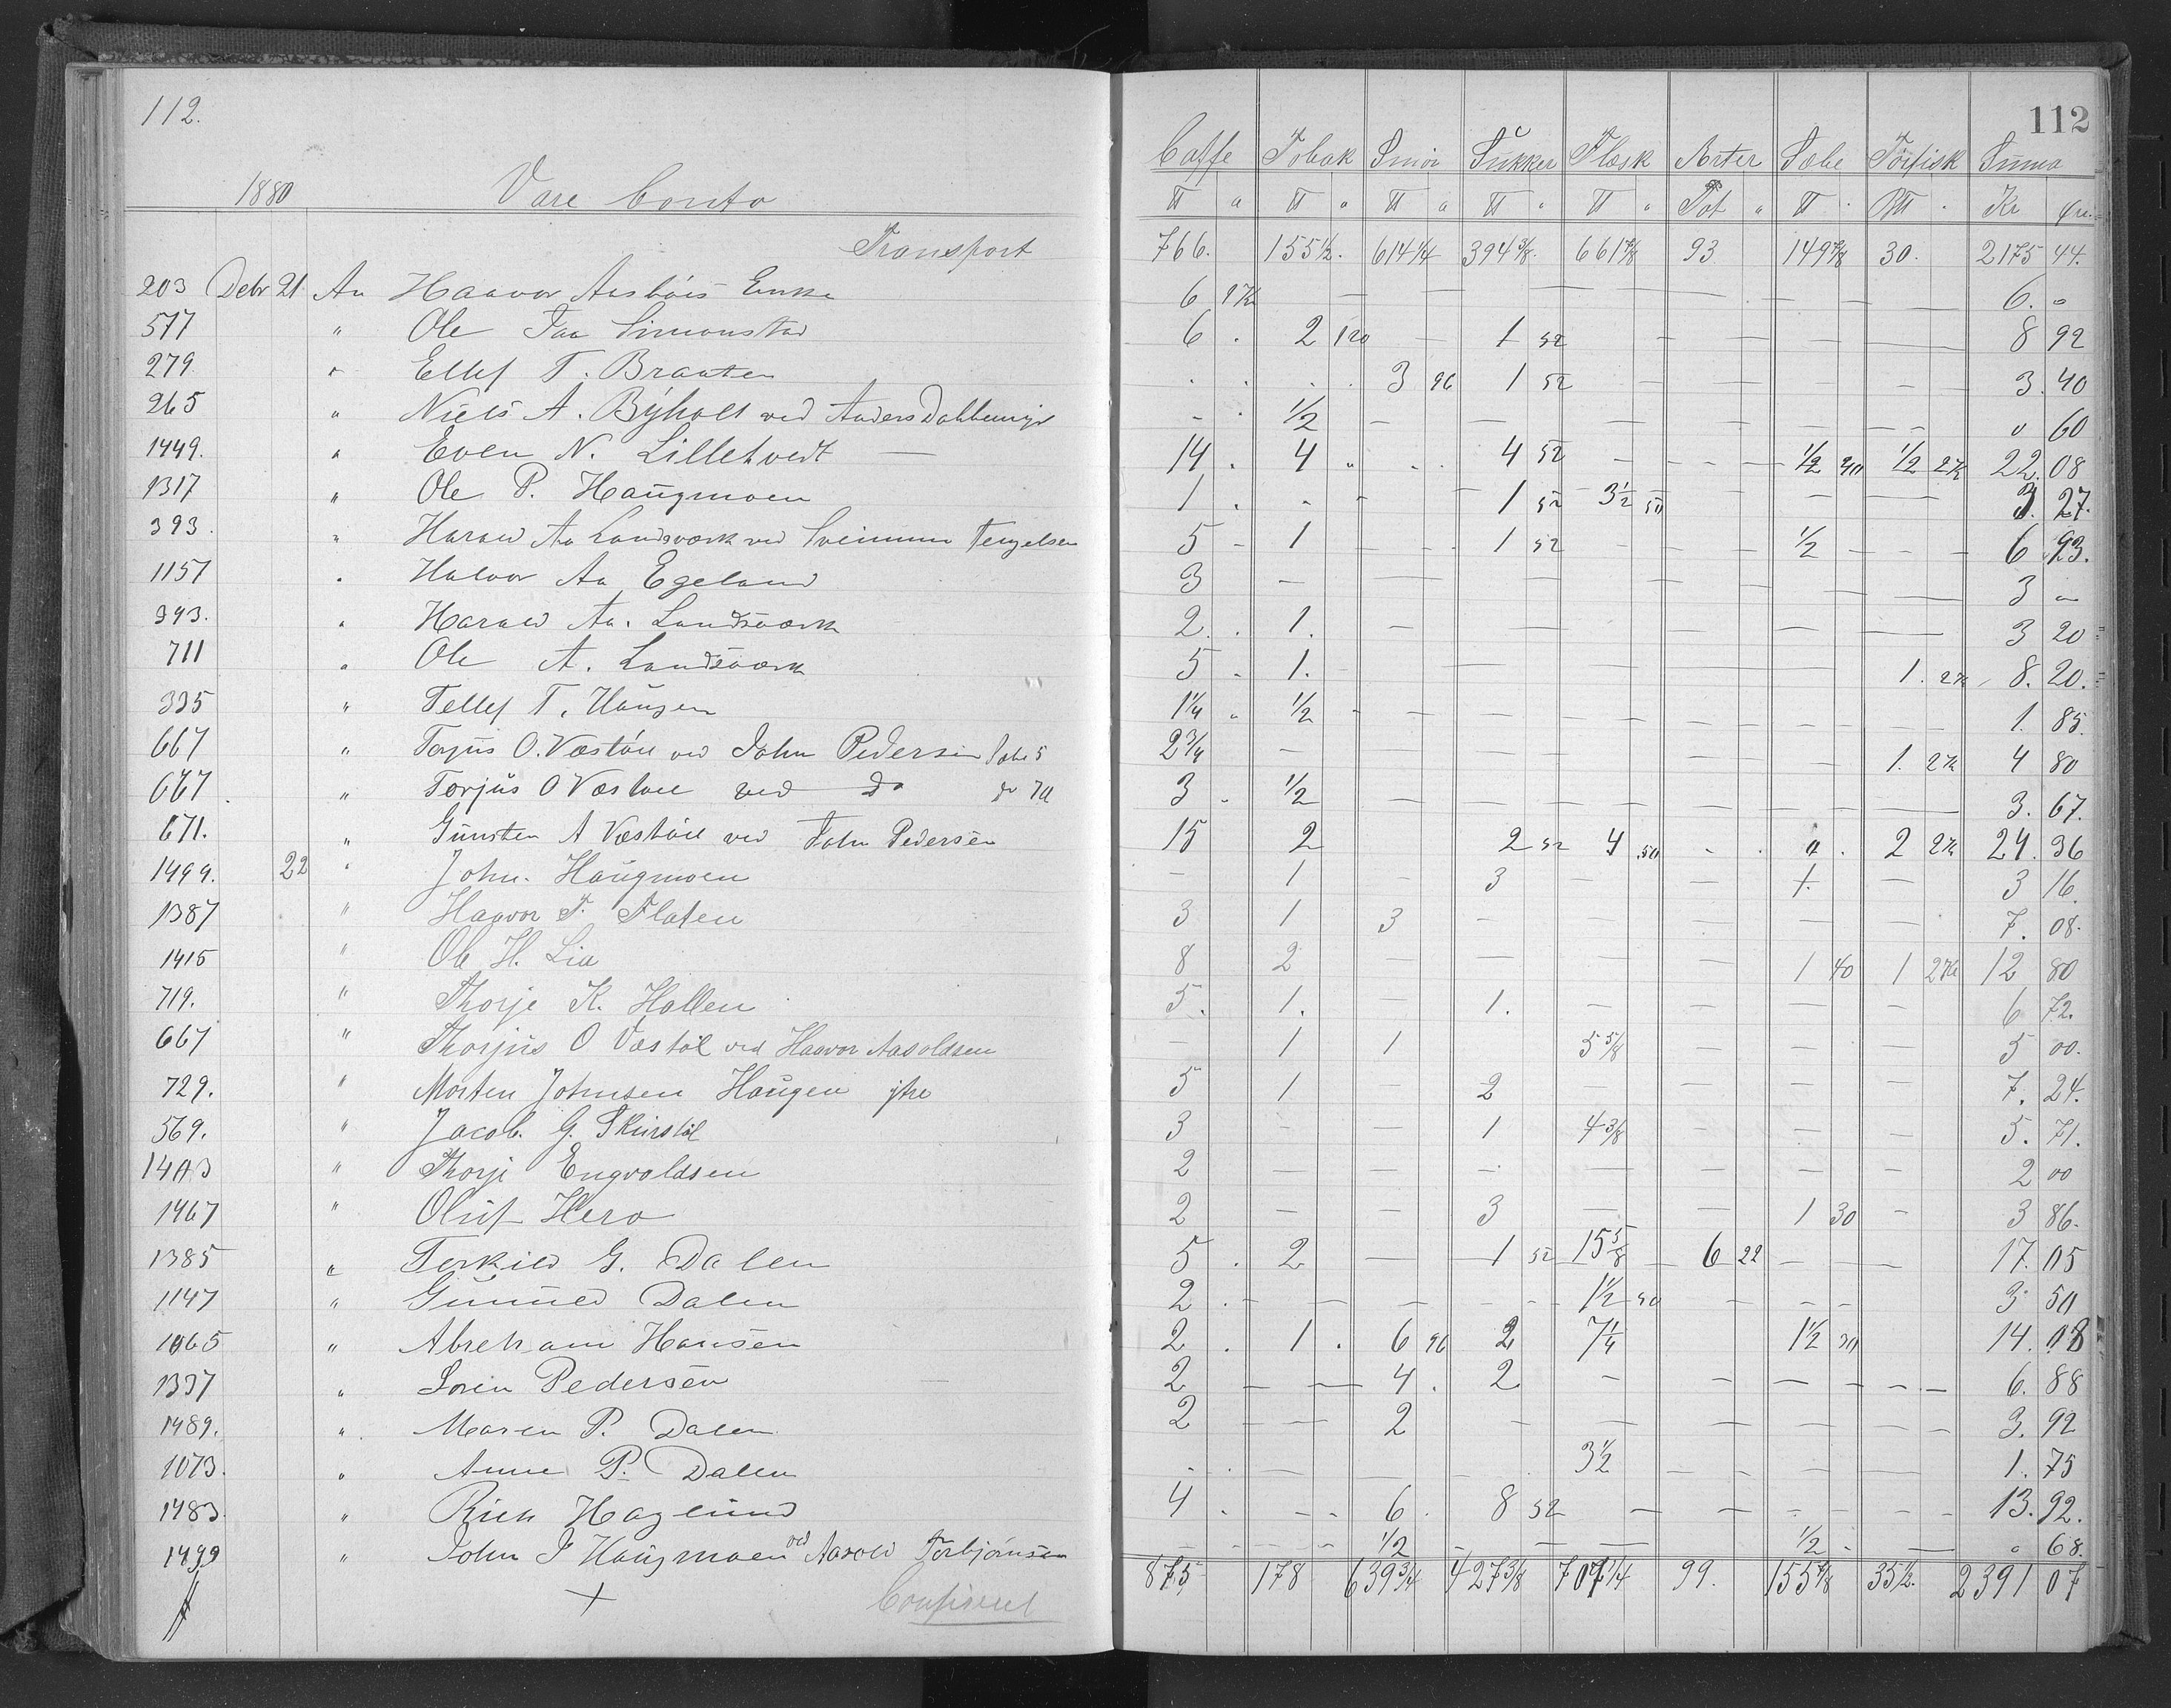 112.
112
Caffe Tobak Smör Sukker Flesk Arter Sæbe Törfisk Suma
1880 Vare Conto
a Pot Kr Öre
Transport 766. 155½. 614¼ 394⅜. 661⅞ 93 149⅞ 30. 2175 44.
203 Debr 21 An Haavor Enke 6 1 Kr — — — — — — — 6. "
577 " Ole Taa Simonstad 6 . 2 120 — 1 52 — — — — 8 92
279 " Ellef T. Braaten . . . . 3 96 1 52 — — — — 3.40
265 " Niels A. Byholt ved Anders — . ½ — — — — — — " 60
1449. " Even N. Lilletvedt — 14 . 4 " . . 4 52 — — — ½ 40 ½ 2Kr 22.08
1317 " Ole P. Haugmoen 1 . — — 1 52 3½ 50 — — — 3.27.
393. " Harald Aa Landsværk ved Tengelsen 5 – 1 — — 1 52 — — ½ — — 6 93.
1157 " Halvor Aa Egeland 3 — — — — — — — 3 "
393. " Harald Aa. Landsværk 2. . 1. — — — — — — 3 20
711 " Ole A. Landsværk 5 . 1. — — — — — 1. 2Kr 8. 20.
335 " Tellef T. Haugen 1¼ " ½ — — — — — — — 1. 85.
667 " Torjus O. Væstöll ved John Pedersen 5 2¾ — — — — — — 1. 2Kr 4 80
667. " Torjus O Væstöll ved do 3 . ½ — — — — — — 3. 67.
671. " Gunsten A Væstöll ved John Pedersen 15 2 2 52 4 .50 . . 4 . 2 2Kr 24. 36
1499. 22 " John. Haugmoen — 1 — 3 — — 1. — 3 16.
1387 " Haavor T. Flaten 3 1 3 — — — — — 7. 08.
1415 " Ole H. Lia 8 2 — — — — 1 40 1 2Kr 12 80
719. " Thorje K. Hollen 5. 1. — 1. — — — — 6 72.
667 " Thorjus O Væstöl ved Haavor Aasoldsen — 1 1 5⅝ — — — 5 00.
729. " Morten Johnsen Haugen ytre 5 1 — 2 — — — — 7. 24.
569. " Jacob. G. Skurstöl 3 — — 1 4⅜ — — — 5. 71.
1443 " Thorje Engvoldsen 2 — — — — — — — 2 00
1467 " Oluf Herö 2 — — 3 — — 1 30 — 3 86.
1385 " Terkild G. Dalen 5 . 2 — — 1 52 15⅝ 6 22 — — 17.05
1147 " Gunuld Dalen 2 . — — — — — 1½ 50 — — — 3 50
1065 " Abraham Hansen 2 . 1 . 6 96 2 7¼ 1½ 30 14. 08
1337 " Soren Pedersen 2 — — 4 . 2 — — — — — 6. 88
1489. " Maren P. Dalen 2 — — 2 — — — — — 3. 92
1073. " Anne P. Dalen . . — — 3½ — — — — 1. 75
1483. " Haglund 4 . — — 6 . 8 52 — — — — 13. 92.
1499 " John J Haugmoen ved Aasold Torbjörnsen — — — — ½ — — — ½ . — " 68.
875 178 639¾ 427⅜ 707¼ 99. 155⅞ 35½. 2391 07
Confirent